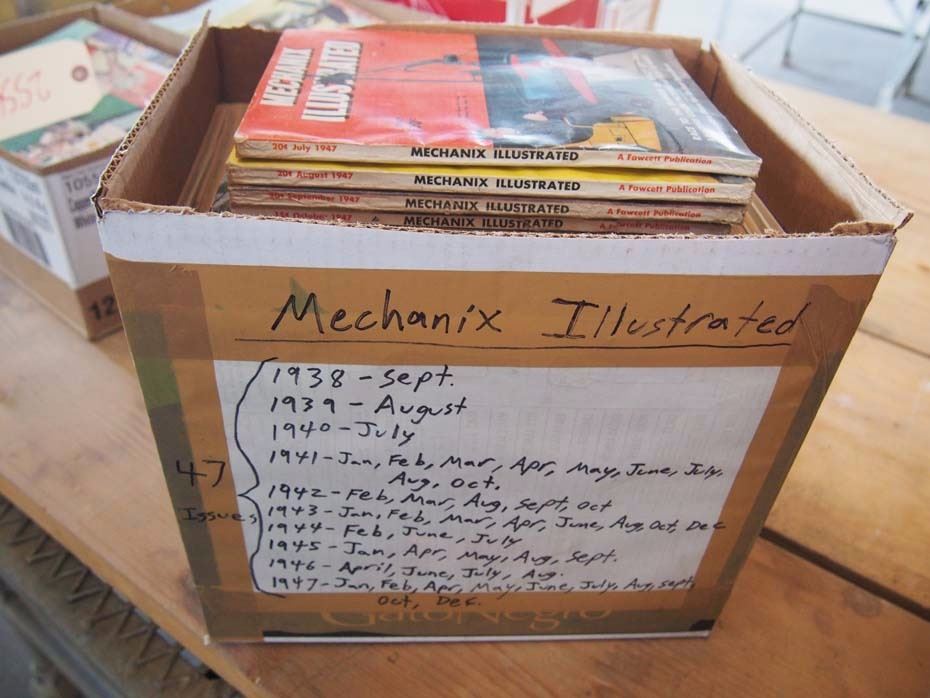 MECHANIX
ILLUSTRATED
20¢ July 1947 MECHANIX ILLUSTRATED A Fawcett Publication
20¢ August 1947 MECHANIX ILLUSTRATED A Fawcett Publication
20¢ September 1947 MECHANIX ILLUSTRATED A Fawcett Publication
15¢ October 1947 MECHANIX ILLUSTRATED A Fawcett Publication
12
Mechanix Illustrated
1938 - Sept.
1939 - August
1940 - July
1941 - Jan, Feb, Mar, Apr, May, June, July,
Aug, Oct.
47
Issues
1942 - Feb, Mar, Aug, Sept, Oct
1943 - Jan, Feb, Mar, Apr, June, Aug, Oct, Dec
1944 - Feb, June, July
1945 - Jan, Apr, May, Aug, Sept.
1946 - April, June, July, Aug.
1947 - Jan, Feb, Apr, May, June, July, Aug, Sept,
Oct, Dec.
GatoNegro